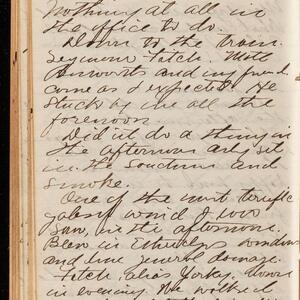 nothing at all in
the office to do.
Down to the train.
Seymour Fatch.
and my friend
come as I expected. He
stuck by me all the
forenoon.
Didn't do a thing in
the afternoon only sit
in the sanctum and
smoke.
One of the most terrific
gales of wind I ever
saw, in the afternoon.
Blew in windows
and done general damage.
Fatch, alias Yorky, down
in evening. We walked